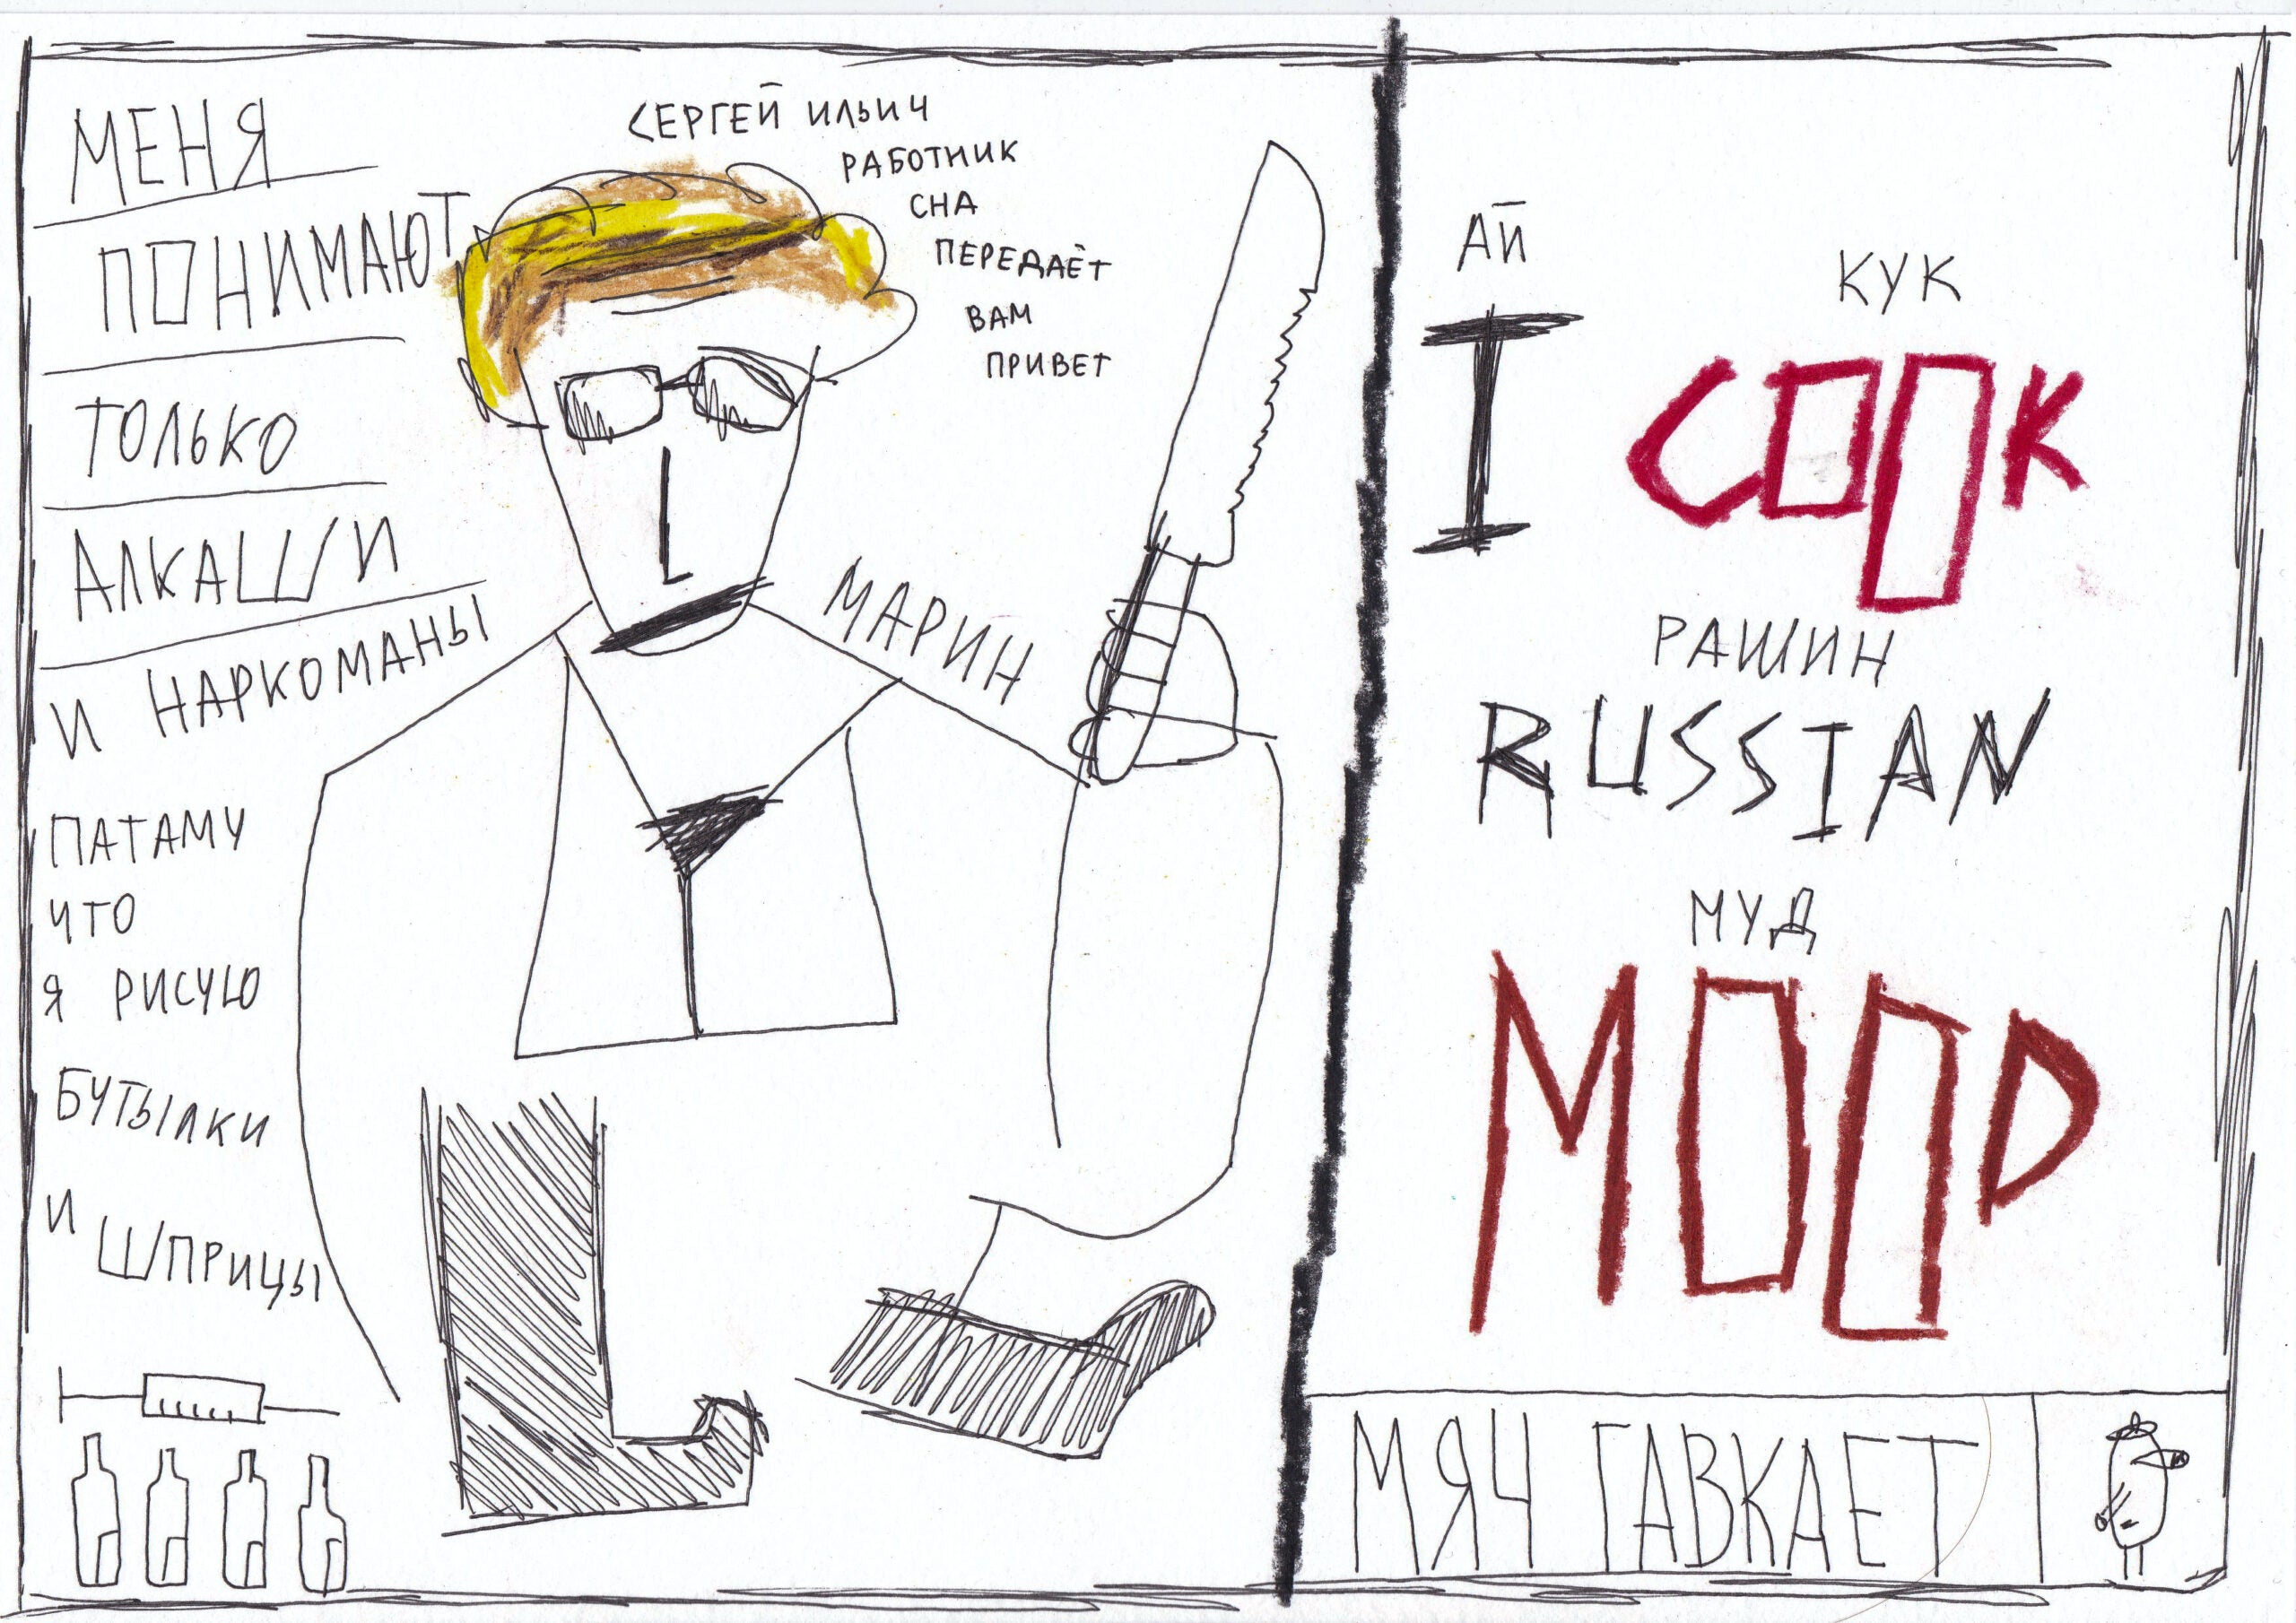 МЕНЯ
ПОНИМАЮТ
ТОЛЬКО
АЛКАШИ
И НАРКОМАНЫ
ПАТАМУ
ЧТО
Я РИСУЮ
БУТЫЛКИ
И
ШПРИЦЫ
СЕРГЕЙ ИЛЬИЧ
РАБОТНИК
СНА
ПЕРЕДАЁТ
ВАМ
ПРИВЕТ
МАРИН
АЙ
КУК
I COOK
РАШИН
RUSSIAN
МУД
MOOD
МЯЧ ГАВКАЕТ